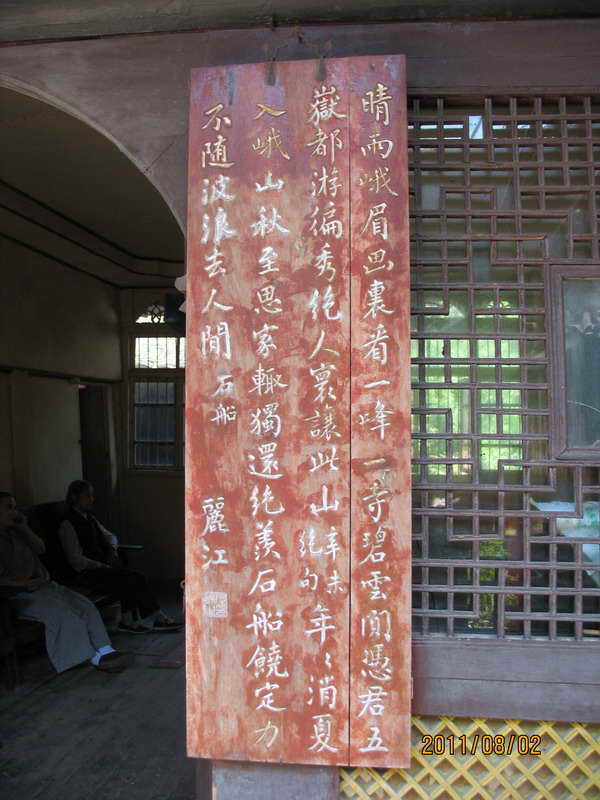 晴雨峨眉画裏看一峰一寺碧雲間憑君五
嶽都游徧秀絶人寰讓此山辛未絶句年々消夏
入峨山秋至思家輙獨還絶羨石船饒定力
不随波浪去人間石船麗江
2011/08/02